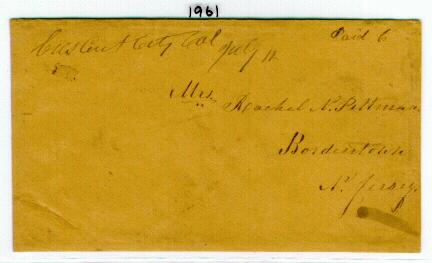 1961
Crescent City Cal July 12
Paid 6
Mrs. Rachel N. Pittman
Bordentown
N. Jersey